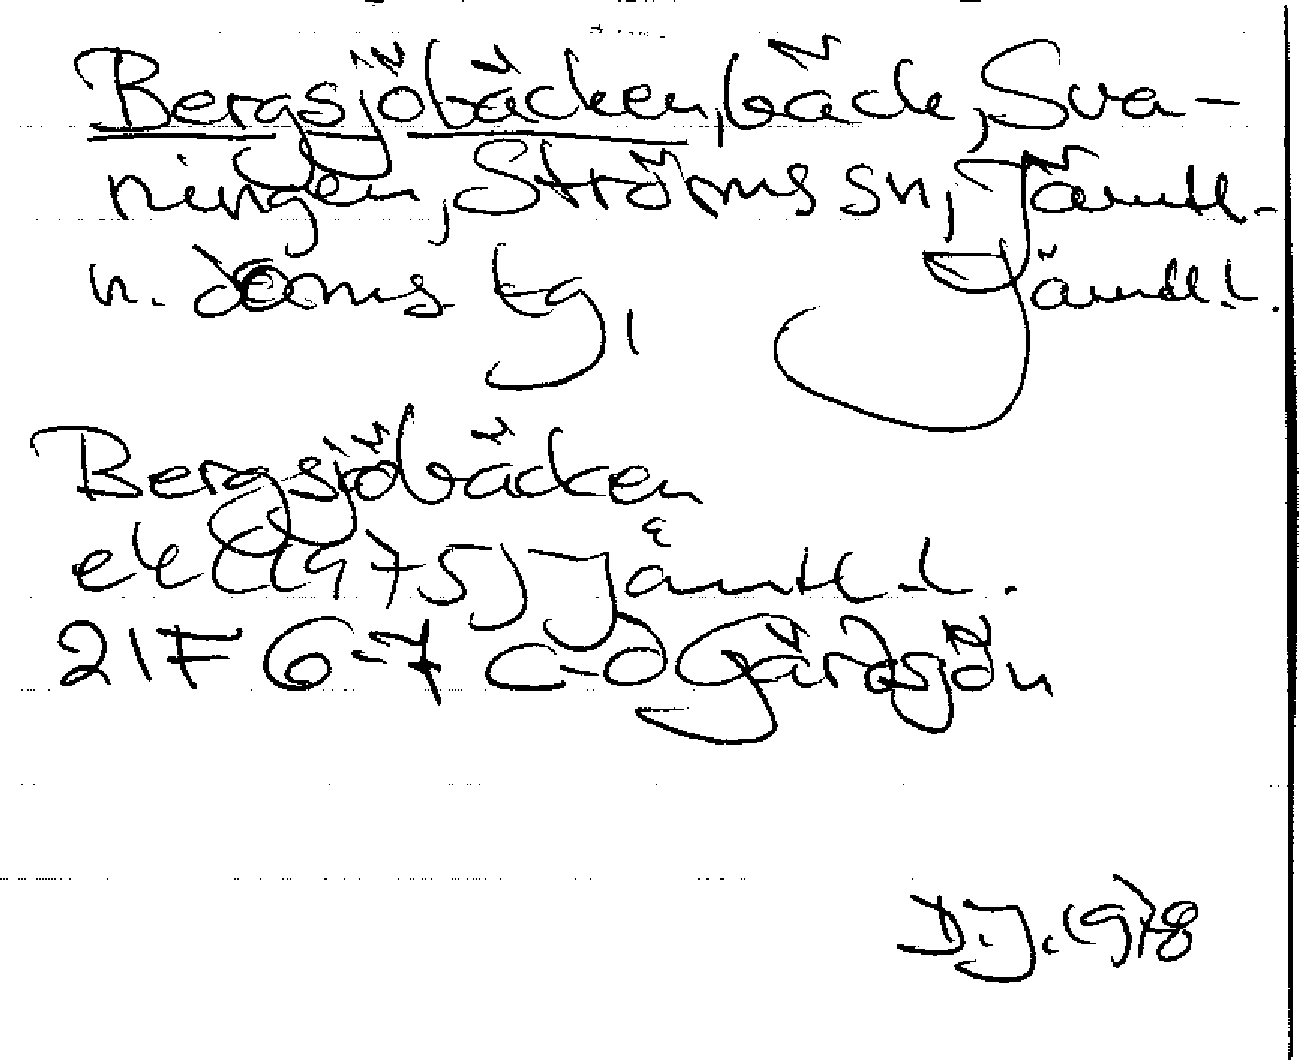 Bergsjöbäcken, bäck, Sva-
ningen, Ströms sn, Jämtl-
n. doms tg, Jämtl.l.
Bergsjöbäcken
ek (1975) Jämtl.l.
21F 6-7 c-d Gärdsjön
D.J. 1978